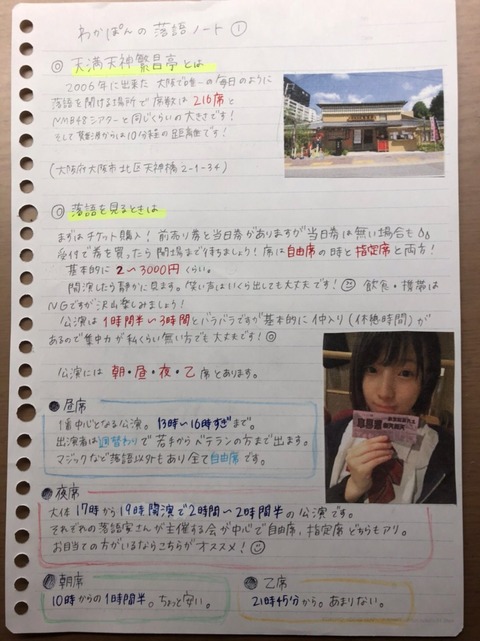 わかぽんの落語ノート①
◎ 天満天神繁昌亭とは
2006年に出来た大阪で唯一の毎日のように
落語を聞ける場所で席数は216席と
NMB48シアターと同じくらいの大きさです!
そして難波からは10分程の距離です!
(大阪府大阪市北区天神橋2-1-34)
◎ 落語を見るときは
まずはチケット購入!前売り券と当日券がありますが当日券は無い場合も
受付で券を買ったら開場まで待ちましょう!席は自由席の時と指定席と両方!
基本的に2〜3000円くらい。
開演したら静かに見ます。笑い声はいくら出しても大丈夫です!飲食・携帯は
NGですが沢山楽しみましょう!
公演は1時間半〜3時間とバラバラですが基本的に仲入り(休憩時間)が
あるので集中力が私くらい無い方でも大丈夫です!◎
公演には朝・昼・夜・乙席とあります。
●昼席
1番中心となる公演。13時〜16時すぎまで。
出演者は週替わりで若手からベテランの方まで出ます。
マジックなど落語以外もあり全て自由席です。
●夜席
大体17時から19時開演で2時間〜2時間半の公演です。
それぞれの落語家さんが主催する会が中心で自由席、指定席どちらもアリ。
お目当ての方がいるならこちらがオススメ!
●朝席
10時からの1時間半。ちょっと安い。
●乙席
21時45分から。あまりない。